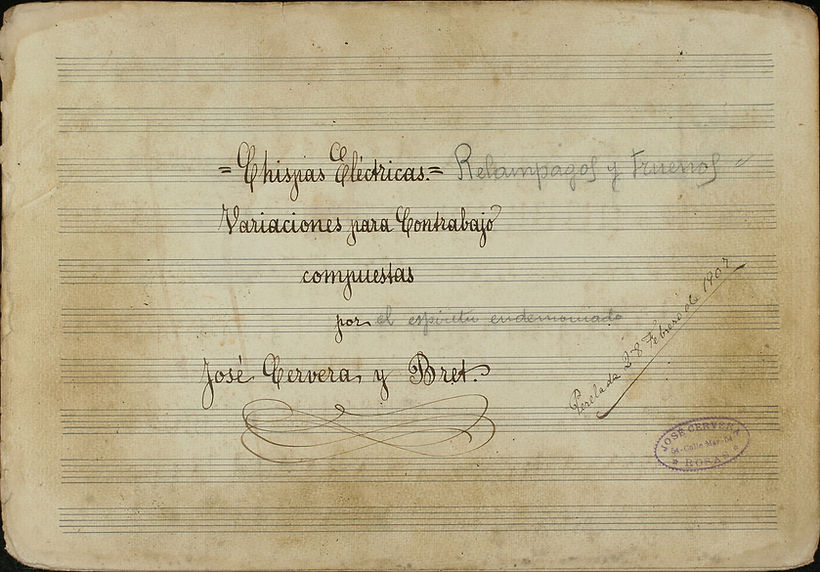 = Chispas Eléctricas. = Relampagos y Truenos =
Variaciones para Contrabajo
compuestas
por el espiritu endemoniado
José Cervera y Bret.
Perelada 28 Febrero de 1907
JOSÉ CERVERA
Calle Mar
ROSAS